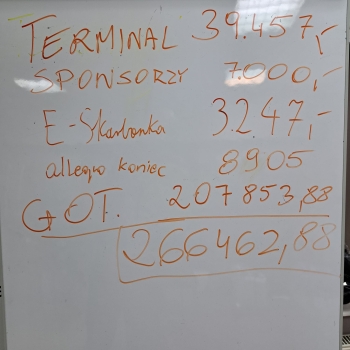 TERMINAL 39.457,-
SPONSORZY 7.000,-
E-Skarbonka 3.247,-
allegro koniec 8905
GOT. 207853,88
266462,88